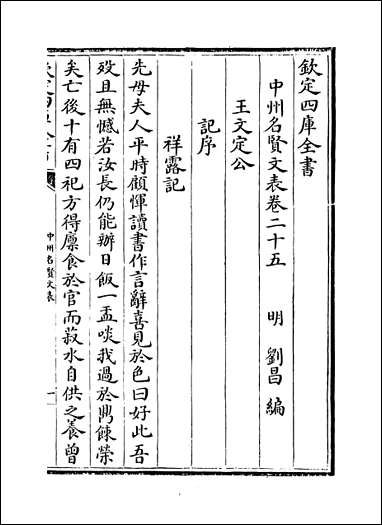 欽定四庫全書
中州名賢文表卷二十五
明 劉昌 編
王文定公
記序
祥露記
先母夫人平時顧惲讀書作言辭喜見於色曰好此吾
歿且無憾若汝長仍能辦日飯一盂啖我過於鼎餗榮
矣亡後十有四祀方得廩食於官而菽水自供之養曾
中州名賢文表
一